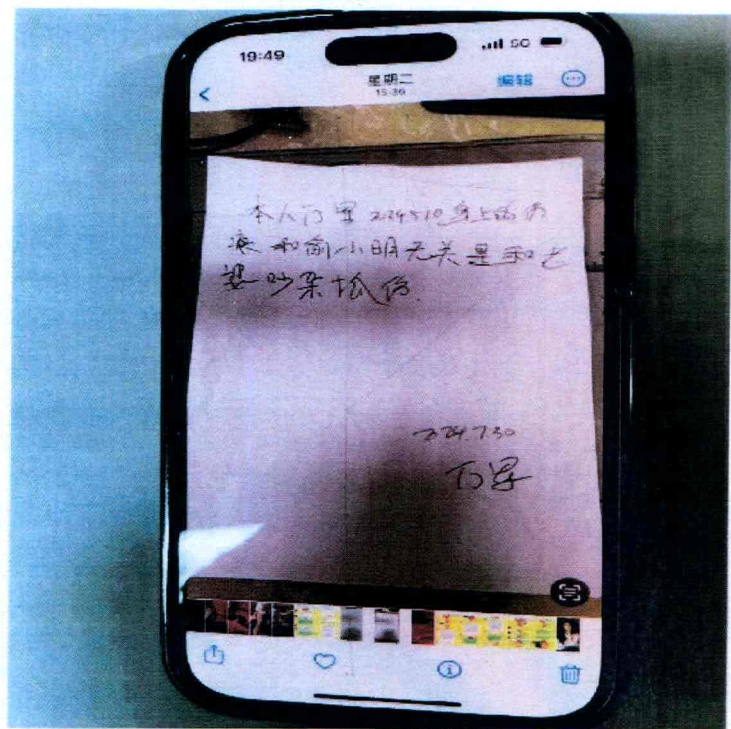 19:49
5G
星期二
15:30
编辑
本人万里224510身上的伤
痕和俞小明无关是和老
婆吵架抓伤.
224.730